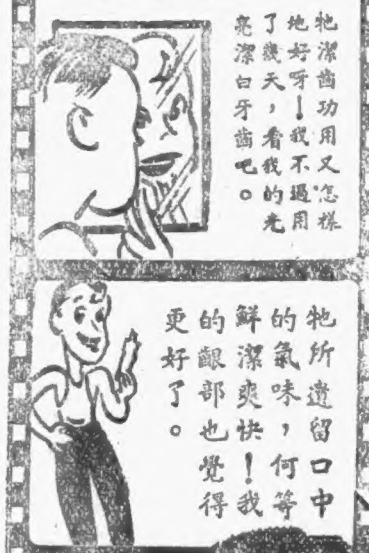 牠潔齒功用又怎樣
地好呀！我不過用
了幾天，看我的光
亮潔白牙齒吧。
牠所遺留口中
的氣味，何等
鮮潔爽快！我
的齦部也覺得
更好了。